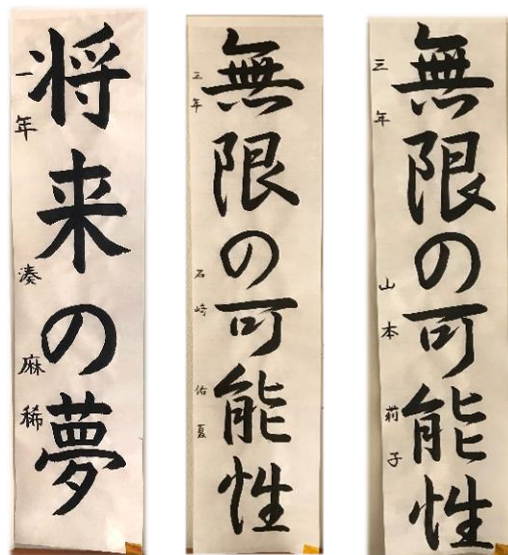 将来の夢
一年 湊 麻稀
無限の可能性
三年 石崎 佑夏
無限の可能性
三年 山本 莉子